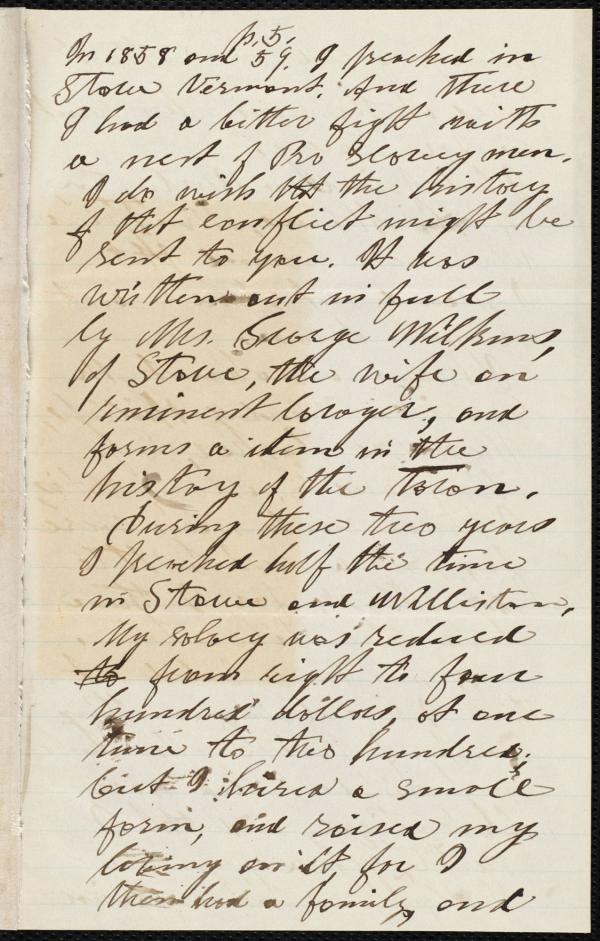 p. 5.
In 1858 and 59. I preached in
Stowe Vermont. And there
I had a bitter fight with
a nest of Pro Slavery men.
I do wish that the history
of that conflict might be
sent to you. It was
written out in full
by Mrs. George Wilkins,
of Stowe, the wife an
eminent lawyer, and
forms a item in the
history of the town.
During these two years
I preached half the time
in Stowe and Williston,
My salary was reduced
to from eight to four
hundred dollars, at one
time to two hundred;
but I hired a small
farm, and raised my
living on it, for I
then had a family, and